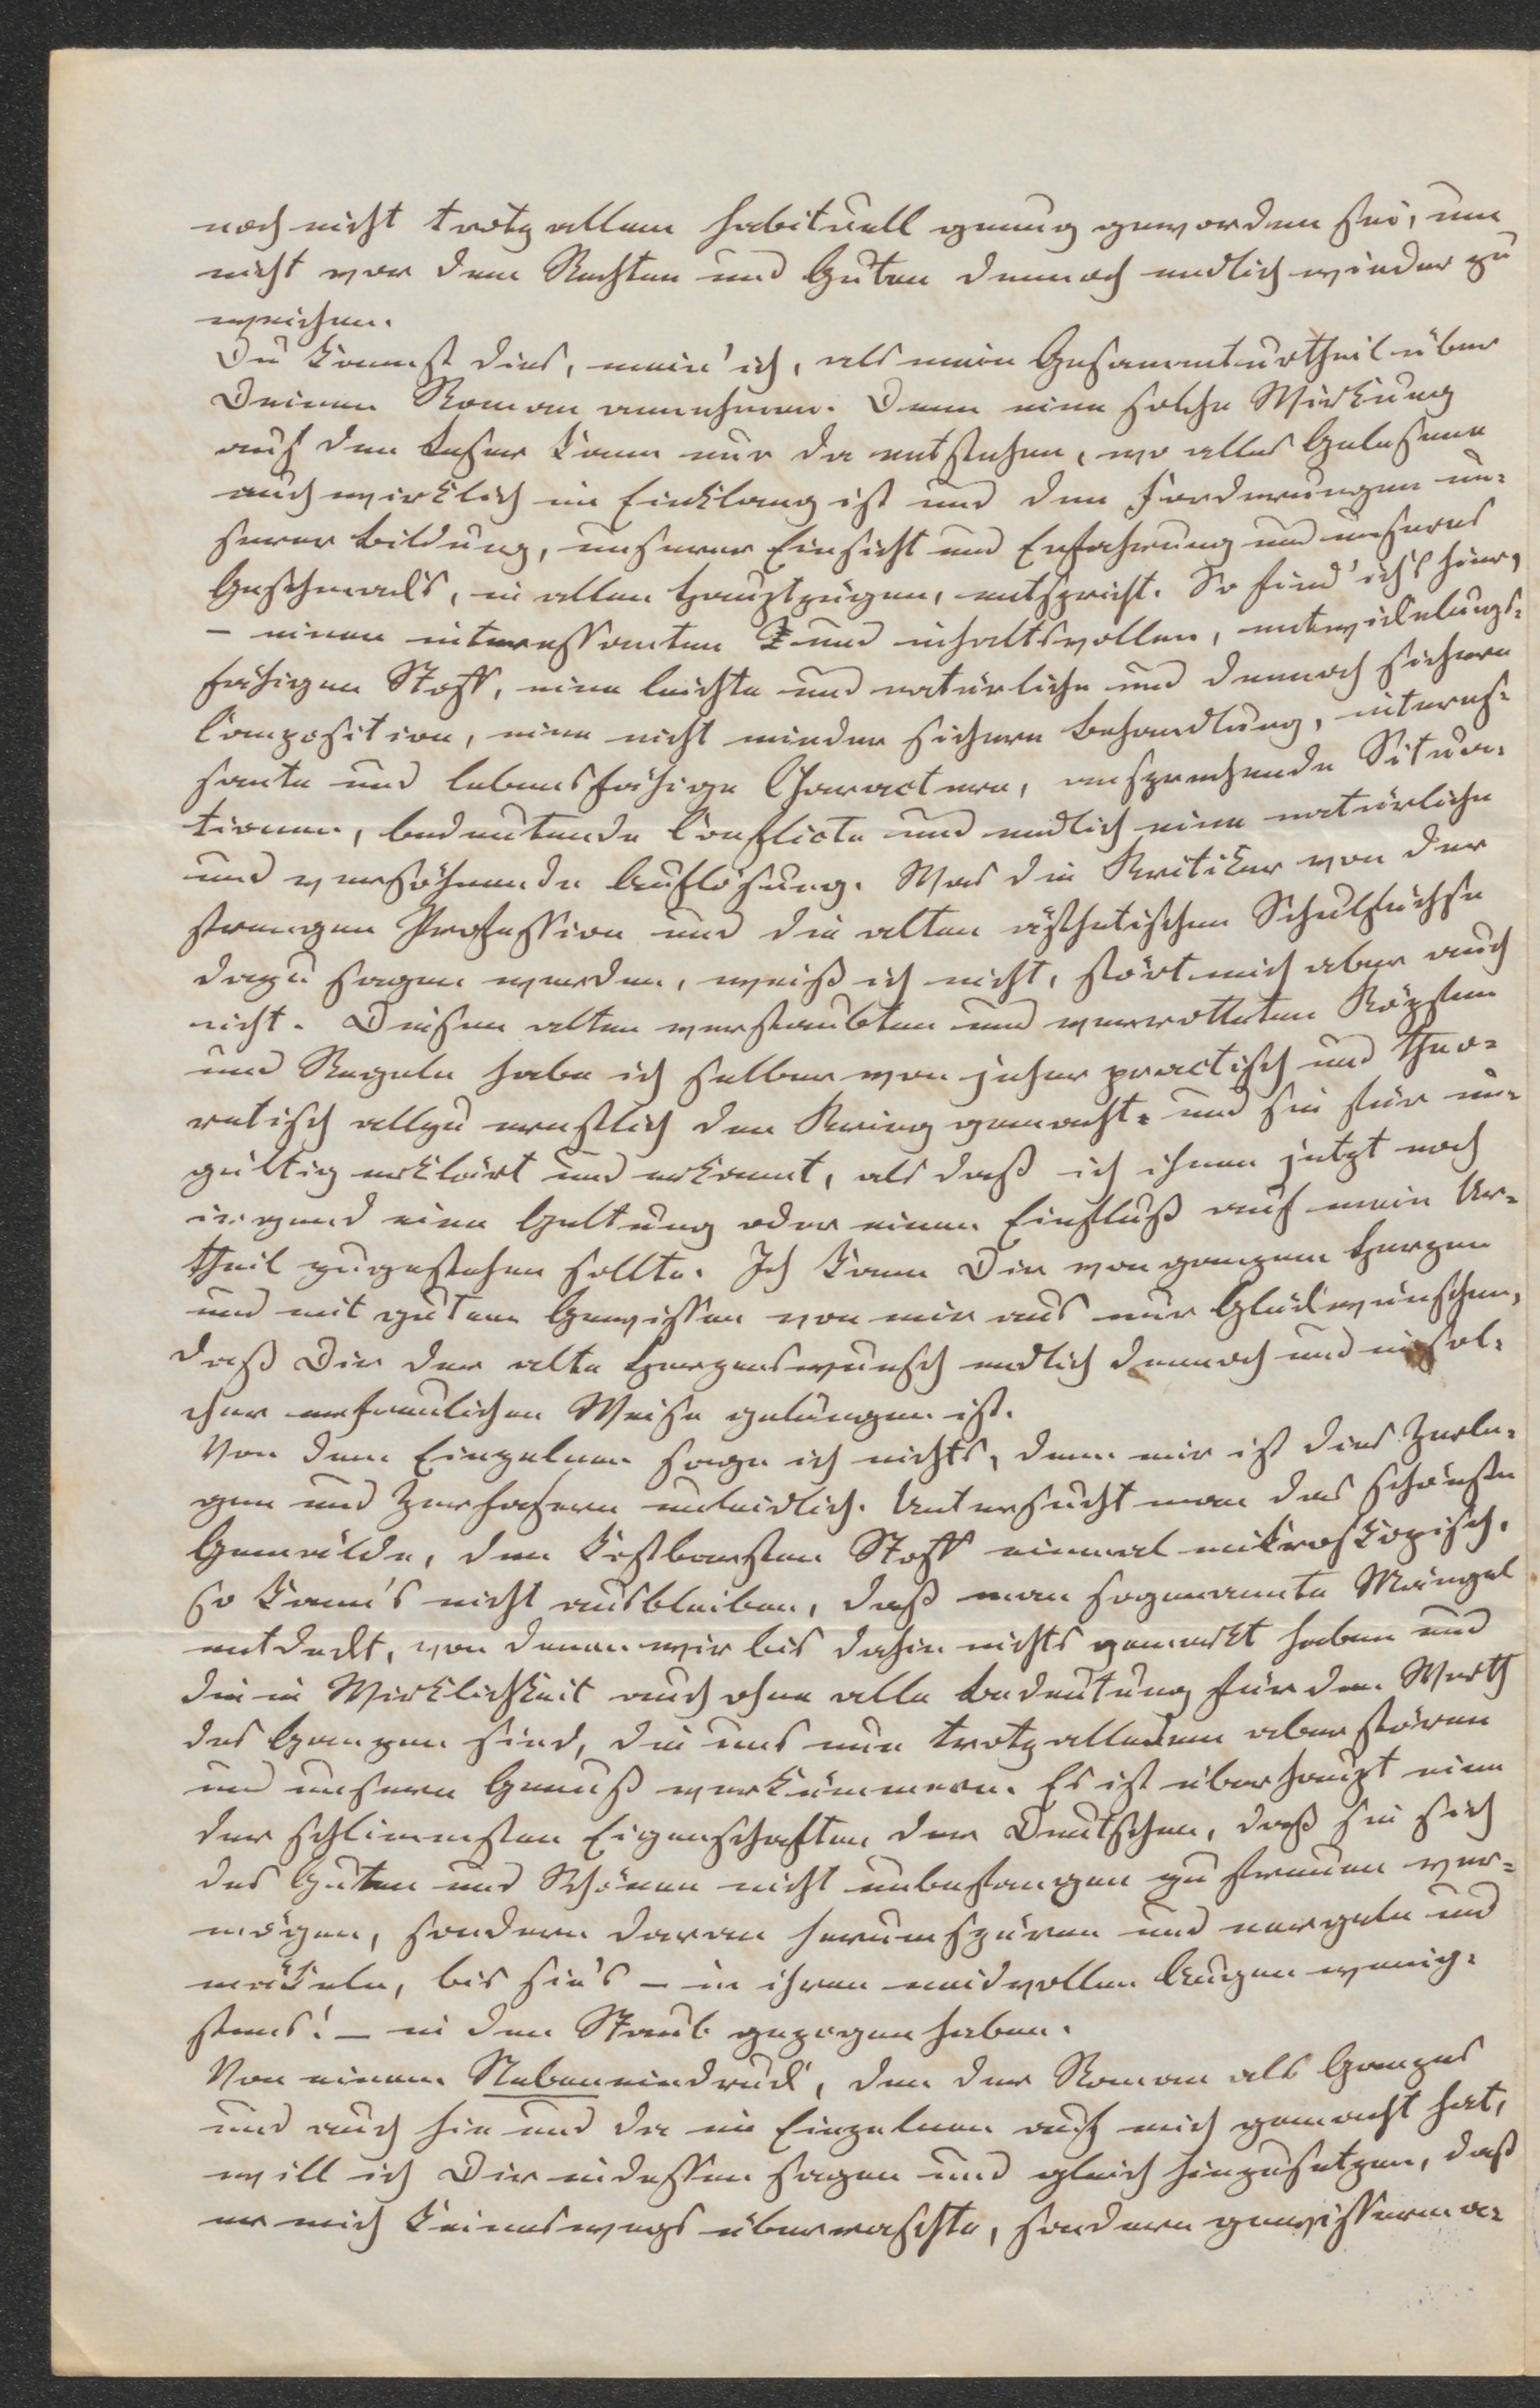 noch nicht trotz allem habituell genug geworden sei, um
nicht vor dem Rechten und Guten dennoch endlich wieder zu
weichen.
Du kannst dies, mein' ich, als mein Gesammturtheil über
Deinen Roman annehmen. Denn eine solche Wirkung
auf den Leser kann nur da entstehen, wo alles Gelesene
auch wirklich im Einklang ist und den Forderungen un-
serer Bildung, unserer Einsicht und Erfahrung und unseres
Geschmacks, in allen Hauptzügen, entspricht. So find' ich's hier,
– einen interessanten und inhaltsvollen, entwickelungs-
fähigen Stoff, eine leichte und natürliche und dennoch sichere
Composition, eine nicht minder sichere Behandlung, interes-
sante und lebensfähige Charactere, ansprechende Situa-
tionen, bedeutende Conflicte und endlich eine natürliche
und versöhnende Auflösung. Was die Kritiker von der
strengen Profession und die alten ästhetischen Schulfüchse
dazu sagen werden, weiß ich nicht, stört mich aber auch
nicht. Diesen alten verstaubten und verrotteten Köpfen
und Regeln habe ich selber von jeher practisch und theo-
retisch allzu ernstlich den Krieg gemacht und sie für un-
gültig erklärt und erkannt, als daß ich ihnen jetzt noch
irgend eine Geltung oder einen Einfluß auf mein Ur-
theil zugestehen sollte. Ich kann Dir von ganzem Herzen
und mit gutem Gewissen von mir aus nur Glückwünschen,
daß Dir der alte Herzenswunsch endlich dennoch und in sol-
cher erfreulichen Weise gelungen ist.
Von dem Einzelnen sage ich nichts, denn mir ist dies Zerle-
gen und Zerfasern unleidlich. Untersucht man das schönste
Gemälde, den kostbarsten Stoff einmal mikroskopisch,
so kann's nicht ausbleiben, daß man sogenannte Mängel
entdeckt, von denen wir bis dahin nichts gemerkt haben und
die in Wirklichkeit auch ohne alle Bedeutung für den Werth
des Ganzen sind, die uns nun trotz alledem aber stören
und unsern Genuß verkümmern. Es ist überhaupt eine
der schlimmsten Eigenschaften der Deutschen, daß sie sich
des Guten und Schönen nicht unbefangen zu freuen ver-
mögen, sondern daran herumspüren und nergeln und
mäkeln, bis sie's – in ihren neidvollen Augen wenig-
stens! – in den Staub gezogen haben.
Von einem Nebeneindruck, den der Roman als Ganzes
und auch hie und da im Einzelnen auf mich gemacht hat,
will ich Dir indessen sagen und gleich hinzusetzen, daß
er mich keineswegs überraschte, sondern gewisserma-